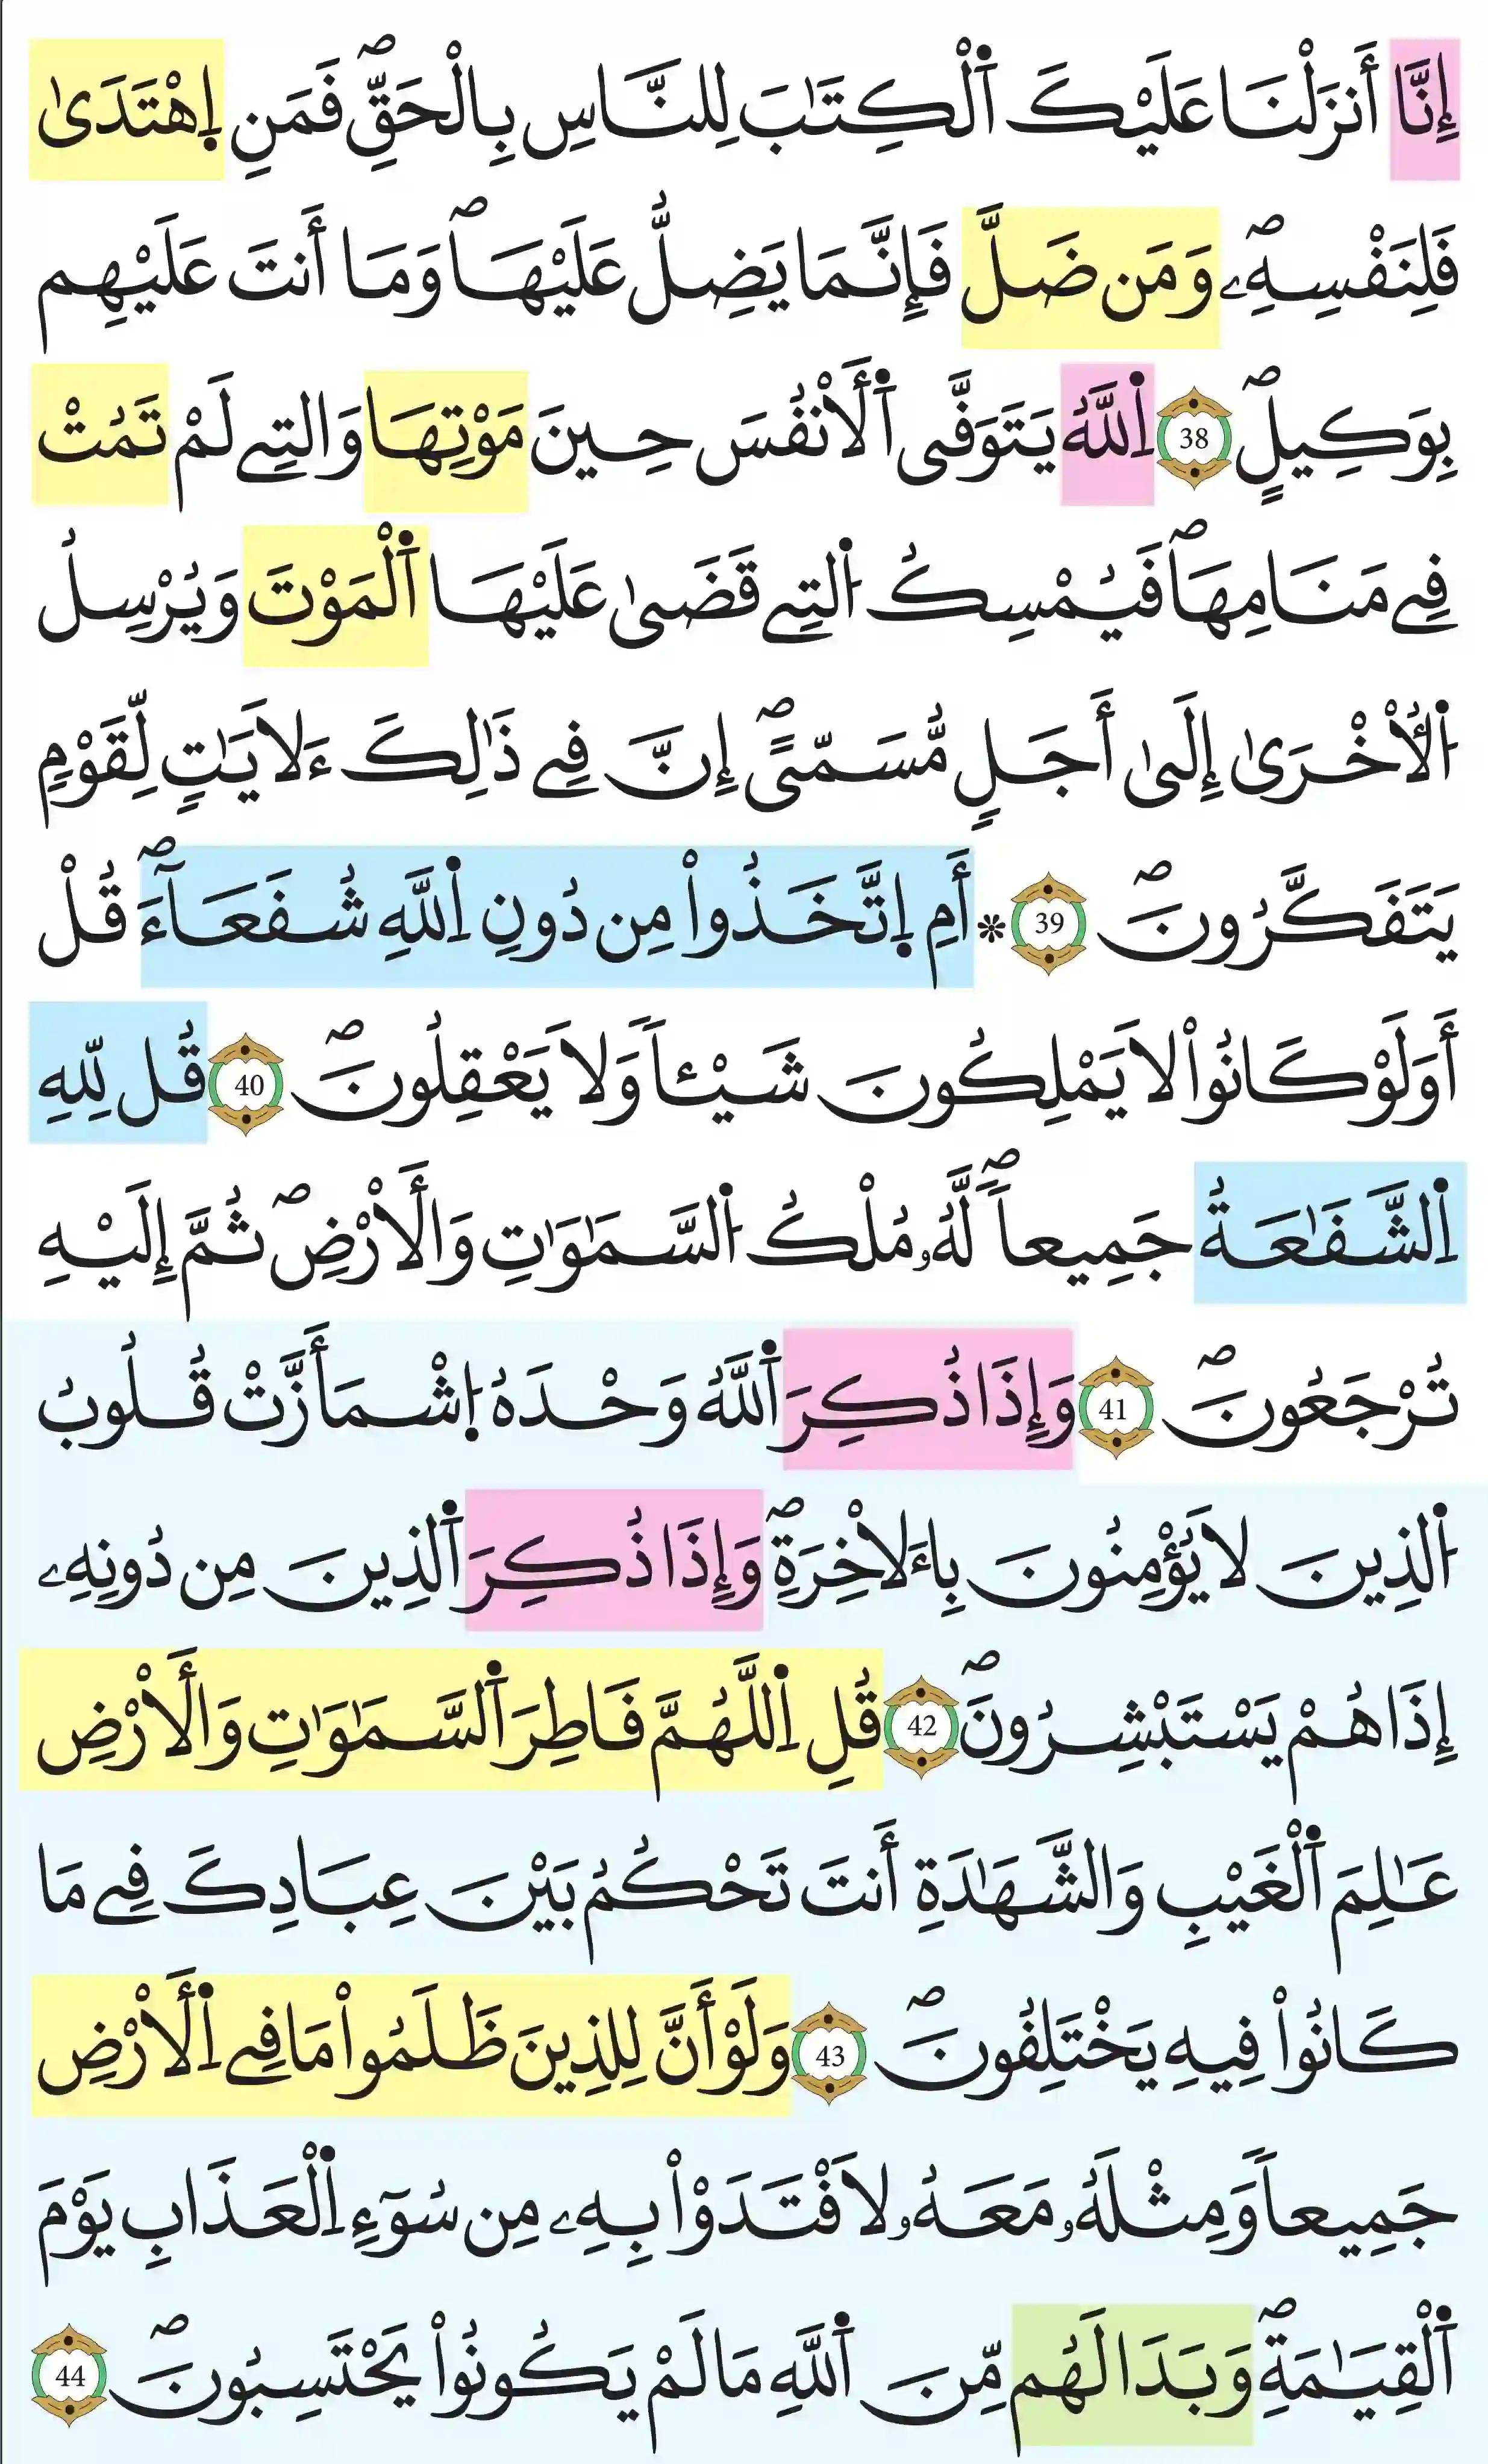 إِنَّا أَنزَلْنَا عَلَيْكَ اَ۬لْكِتَٰبَ لِلنَّاسِ بِالْحَقِّۖ فَمَنِ اِ۪هْتَدَىٰ
فَلِنَفْسِهِۦۖ وَمَن ضَلَّ فَإِنَّمَا يَضِلُّ عَلَيْهَاۖ وَمَا أَنتَ عَلَيْهِم
بِوَكِيلٍۖ 38 اِ۬للَّهُ يَتَوَفَّى اَ۬لَأَنْفُسَ حِينَ مَوْتِهَا وَالتِے لَمْ تَمُتْ
فِے مَنَامِهَاۖ فَيُمْسِكُ اُ۬لتِے قَضَىٰ عَلَيْهَا اَ۬لْمَوْتَ وَيُرْسِلُ
اُ۬لُاخْرَىٰ إِلَىٰ أَجَلٍ مُّسَمّىًۖ إِنَّ فِے ذَٰلِكَ ءَلَايَٰتٍ لِّقَوْمٍ
يَتَفَكَّرُونَۖ 39 ۞أَمِ اِ۪تَّخَذُواْ مِن دُونِ اِ۬للَّهِ شُفَعَآءَۖ قُلْ
أَوَلَوْ كَانُواْ لَا يَمْلِكُونَ شَيْـٔاً وَلَا يَعْقِلُونَۖ 40 قُل لِّلهِ
اِ۬لشَّفَٰعَةُ جَمِيعاًۖ لَّهُۥ مُلْكُ اُ۬لسَّمَٰوَٰتِ وَالَأَرْضِۖ ثُمَّ إِلَيْهِ
تُرْجَعُونَۖ 41 وَإِذَا ذُكِرَ اَ۬للَّهُ وَحْدَهُ اُ۪شْمَأَزَّتْ قُلُوبُ
اُ۬لذِينَ لَا يُؤْمِنُونَ بِاءَلَاخِرَةِۖ وَإِذَا ذُكِرَ اَ۬لذِينَ مِن دُونِهِۦ
إِذَا هُمْ يَسْتَبْشِرُونَۖ 42 قُلِ اِ۬للَّهُمَّ فَاطِرَ اَ۬لسَّمَٰوَٰتِ وَالَأَرْضِ
عَٰلِمَ اَ۬لْغَيْبِ وَالشَّهَٰدَةِ أَنتَ تَحْكُمُ بَيْنَ عِبَادِكَ فِے مَا
كَانُواْ فِيهِ يَخْتَلِفُونَۖ 43 وَلَوْ أَنَّ لِلذِينَ ظَلَمُواْ مَا فِے اِ۬لَأَرْضِ
جَمِيعاً وَمِثْلَهُۥ مَعَهُۥ لَافْتَدَوْاْ بِهِۦ مِن سُوٓءِ اِ۬لْعَذَابِ يَوْمَ
اَ۬لْقِيَٰمَةِۖ وَبَدَا لَهُم مِّنَ اَ۬للَّهِ مَا لَمْ يَكُونُواْ يَحْتَسِبُونَۖ 44